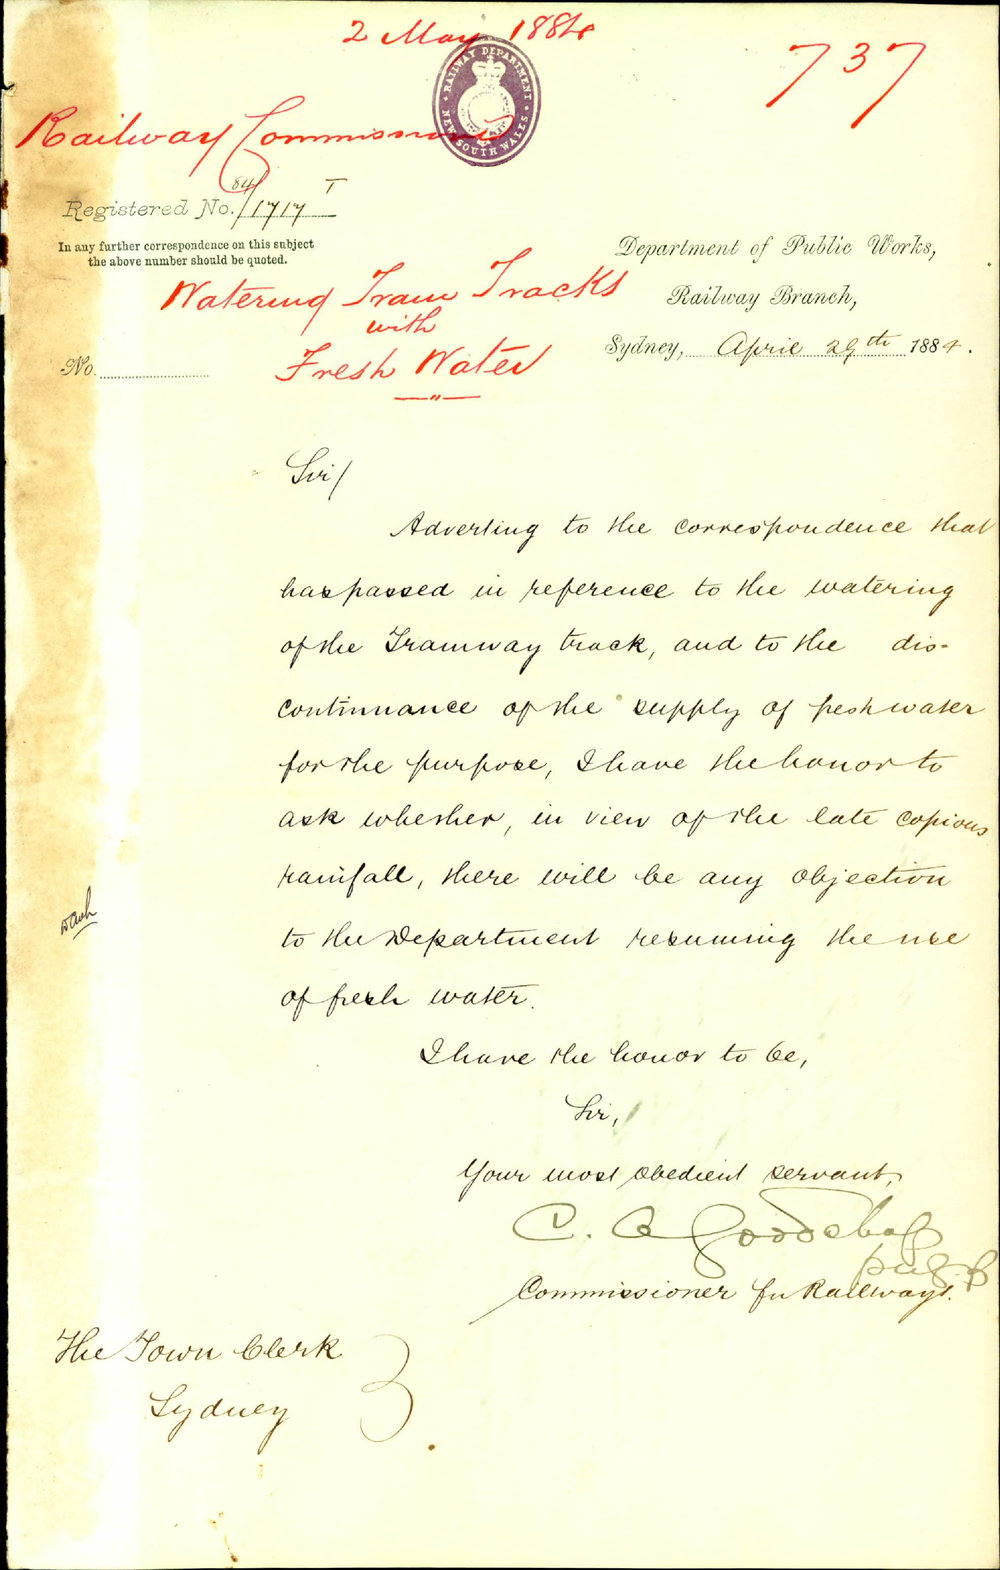 2 May 1884
737
RAILWAY DEPARTMENT
NEW SOUTH WALES
Railway Commissioners
Registered No. 84/1717 T
In any further correspondence on this subject
the above number should be quoted.
Department of Public Works,
Railway Branch,
Sydney, April 29th 1884.
Watering Tram Tracks
with
Fresh Water
No.
Sir/
Adverting to the correspondence that
has passed in reference to the watering
of the Tramway track, and to the dis-
continuance of the supply of fresh water
for the purpose, I have the honor to
ask whether, in view of the late copious
rainfall, there will be any objection
to the Department resuming the use
of fresh water.
I have the honor to be,
Sir,
Your most obedient servant,
C. A. Goodchap
Commissioner for Railways.
The Town Clerk
Sydney